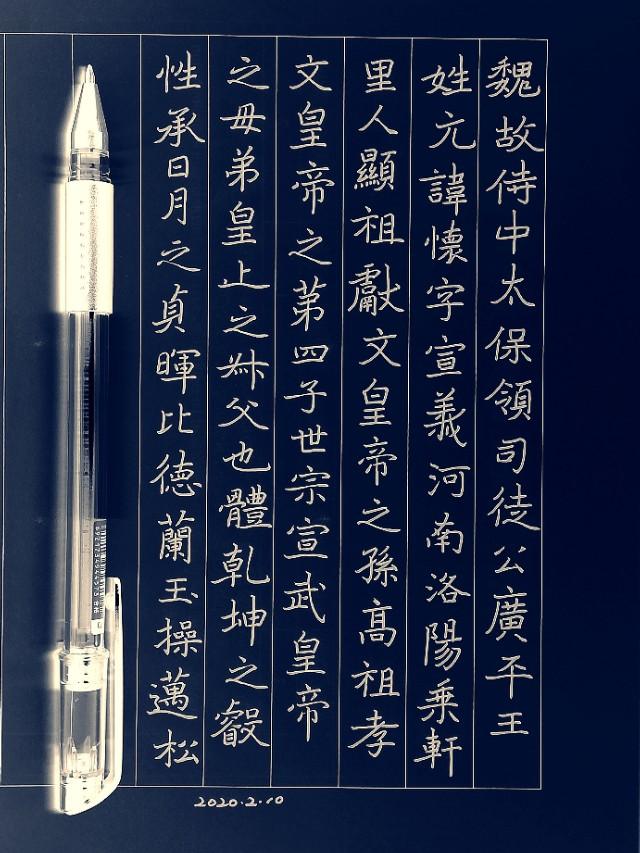 魏故侍中太保領司徒公廣平王
姓元諱懷字宣義河南洛陽乘軒
里人顯祖獻文皇帝之孫高祖孝
文皇帝之第四子世宗宣武皇帝
之母弟皇上之叔父也體乾坤之叡
性承日月之貞暉比德蘭玉操邁松
2020.2.10